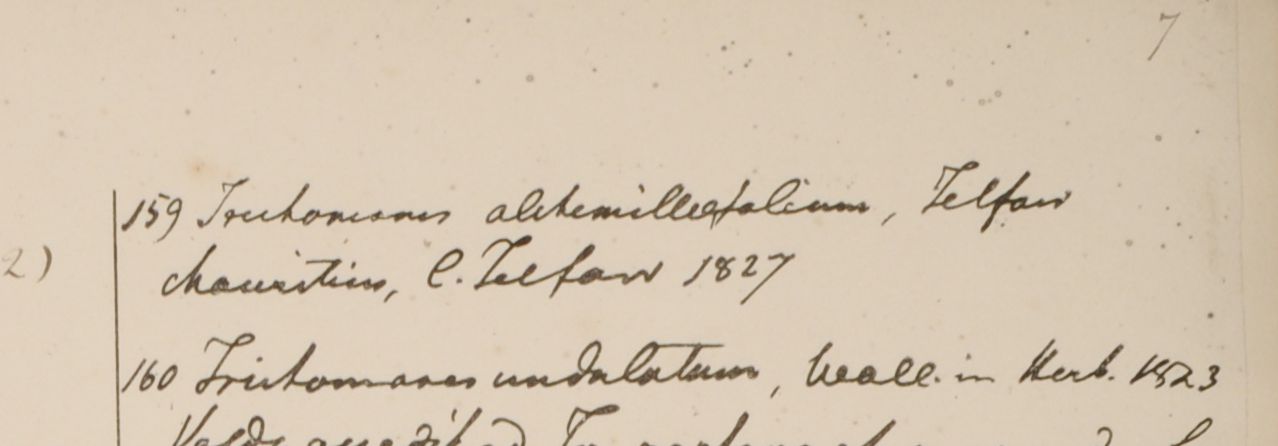 7
159 Trichomanes alchemillæfolium, Telfair
2)
Mauritius, C. Telfair 1827
160 Trichomanes undulatum, Wall. in Herb. 1823